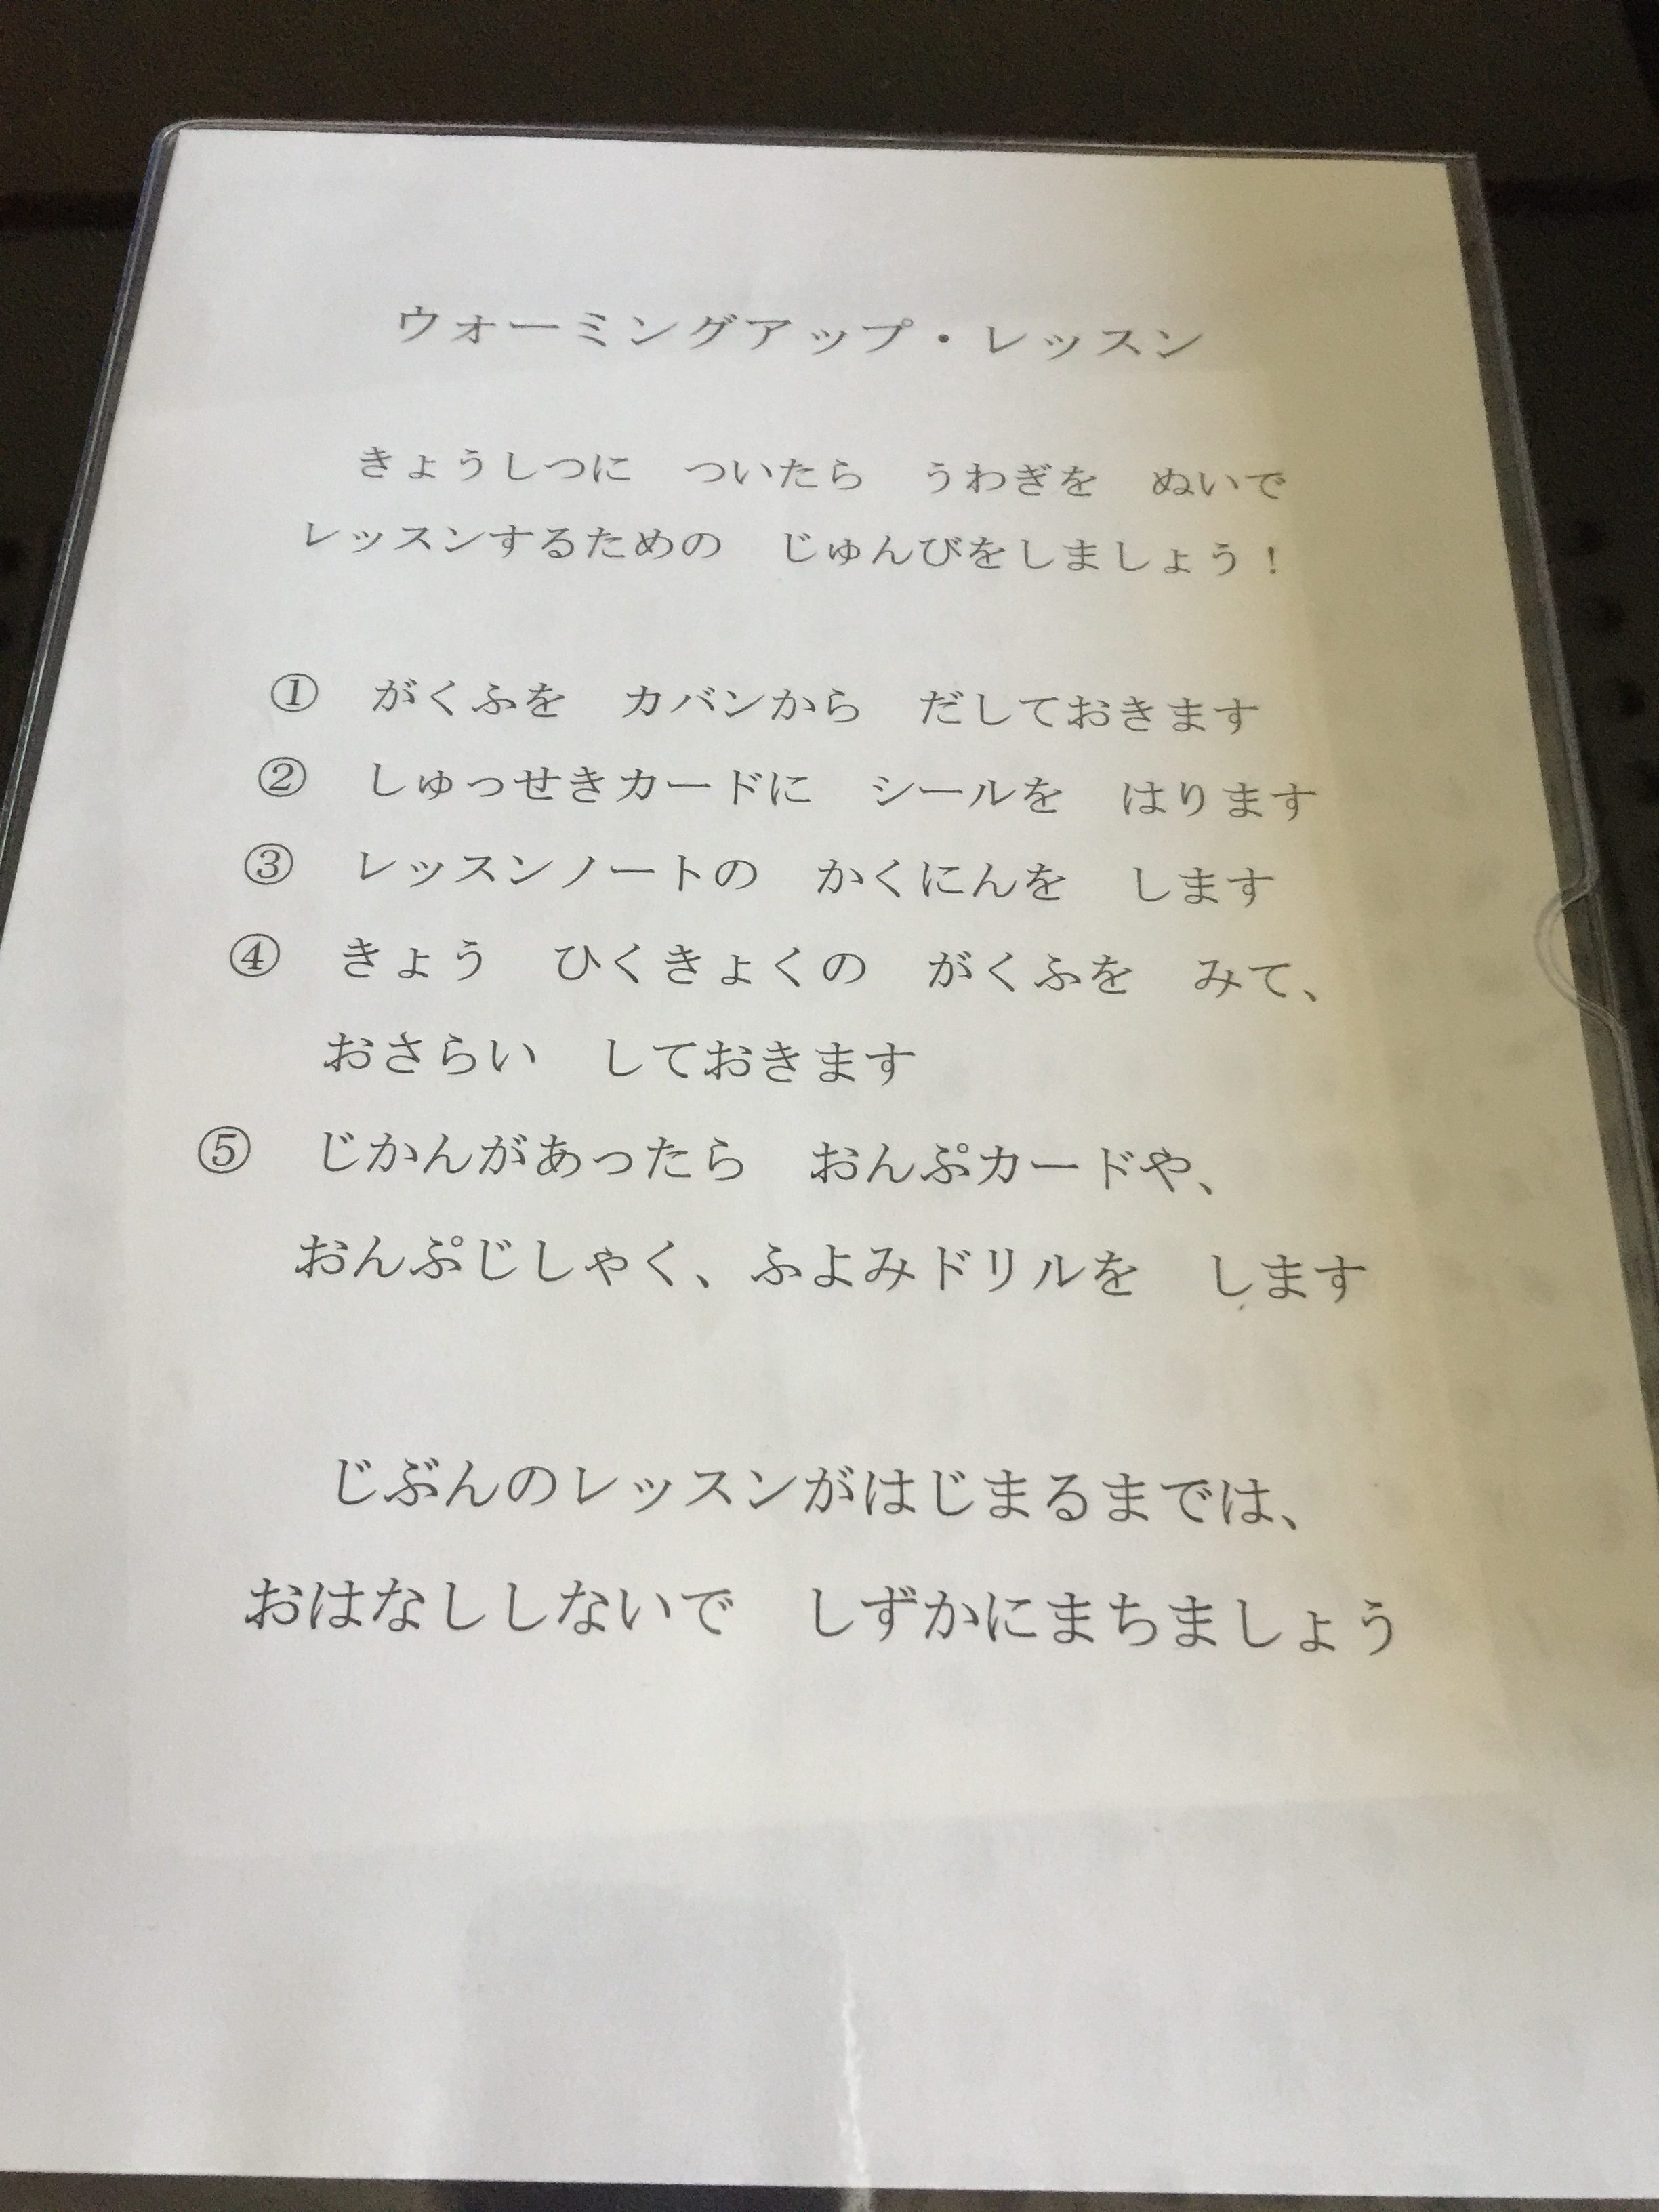 ウォーミングアップ・レッスン
きょうしつに　ついたら　うわぎを　ぬいで
レッスンするための　じゅんびをしましょう！
①　がくふを　カバンから　だしておきます
②　しゅっせきカードに　シールを　はります
③　レッスンノートの　かくにんを　します
④　きょう　ひくきょくの　がくふを　みて、
おさらい　しておきます
⑤　じかんがあったら　おんぷカードや、
おんぷじしゃく、ふよみドリルを　します
じぶんのレッスンがはじまるまでは、
おはなししないで　しずかにまちましょう